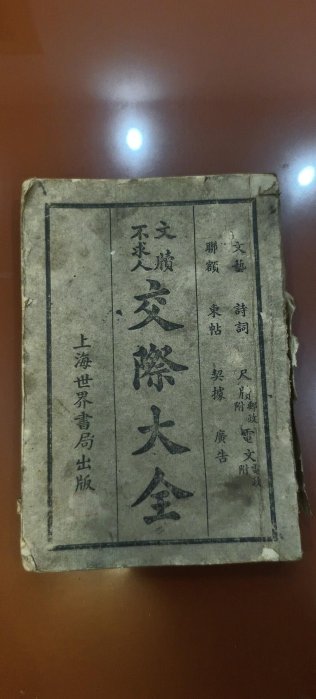 文藝 詩詞 尺牘 附郵政 電文 附電政
聯額 柬帖 契據 廣告
文牘
不求人
交際大全
上海世界書局出版